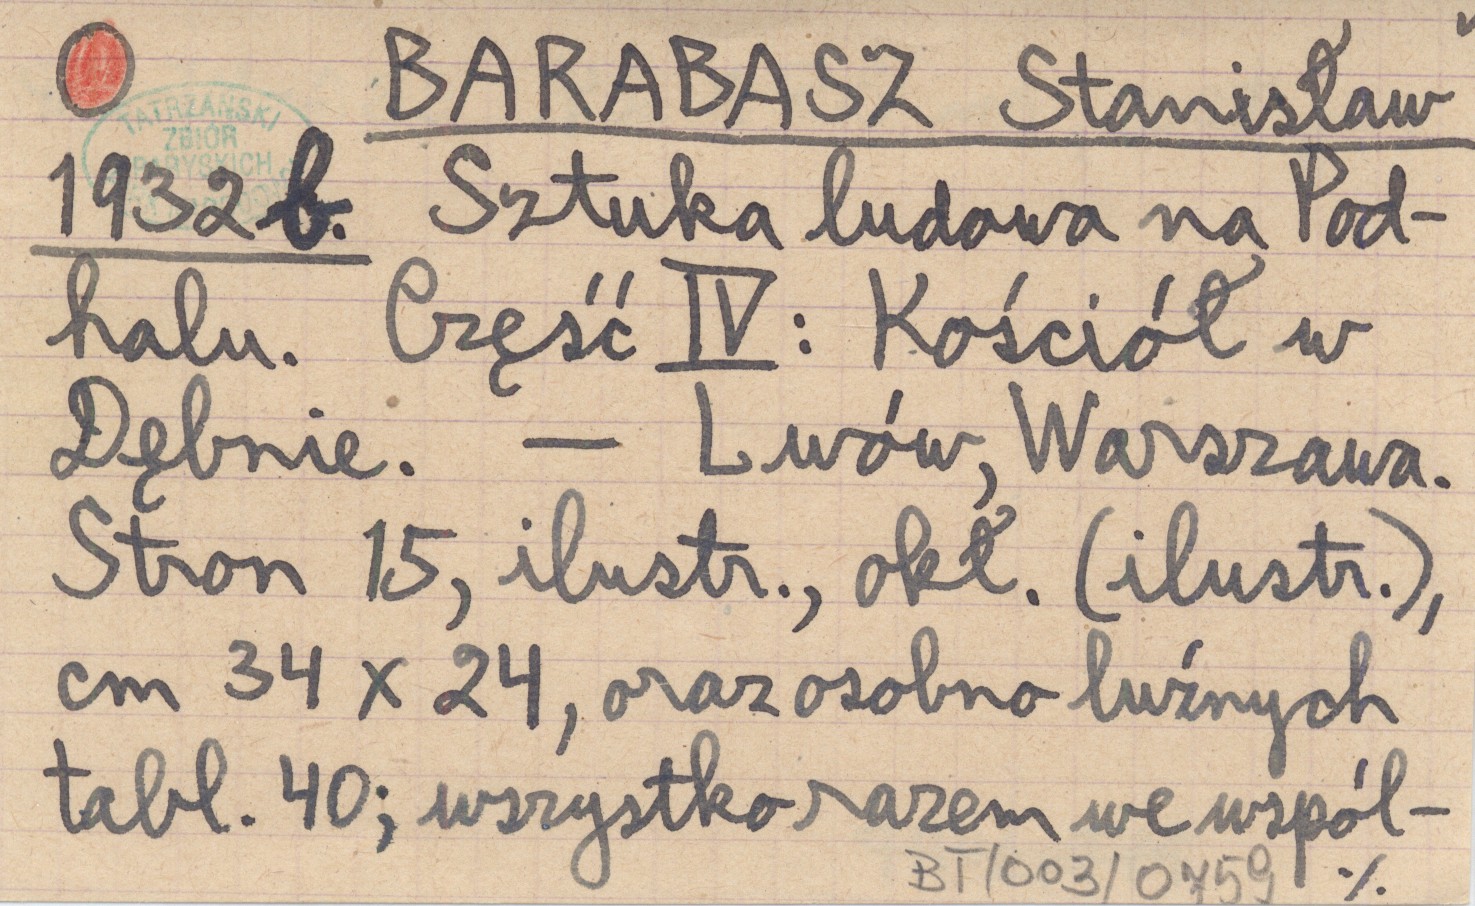 BARABASZ Stanisław
TATRZAŃSKI
ZBIÓR
PARYSKICH
1932b. Sztuka ludowa na Pod-
halu. Część IV: Kościół w
Dębnie. — Lwów, Warszawa.
Stron 15, ilustr., okł. (ilustr.),
cm 34 x 24, oraz osobno luźnych
tabl. 40; wszystko razem we wspól-
BT/003/0759 ·/.